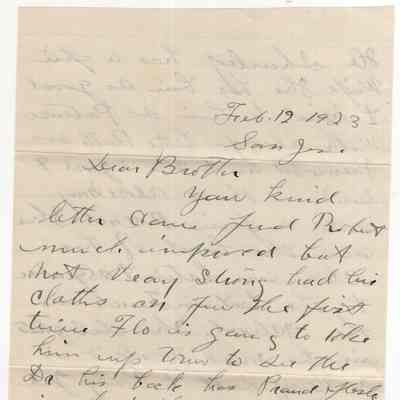 Feb. 12 1923
San Jo.
Dear Brother
Your kind
letter came find Robert
much improved but
not veary strong had his
cloths on for the first
time Flo is going to take
him up town to see the
Dr his back has Proud flesh